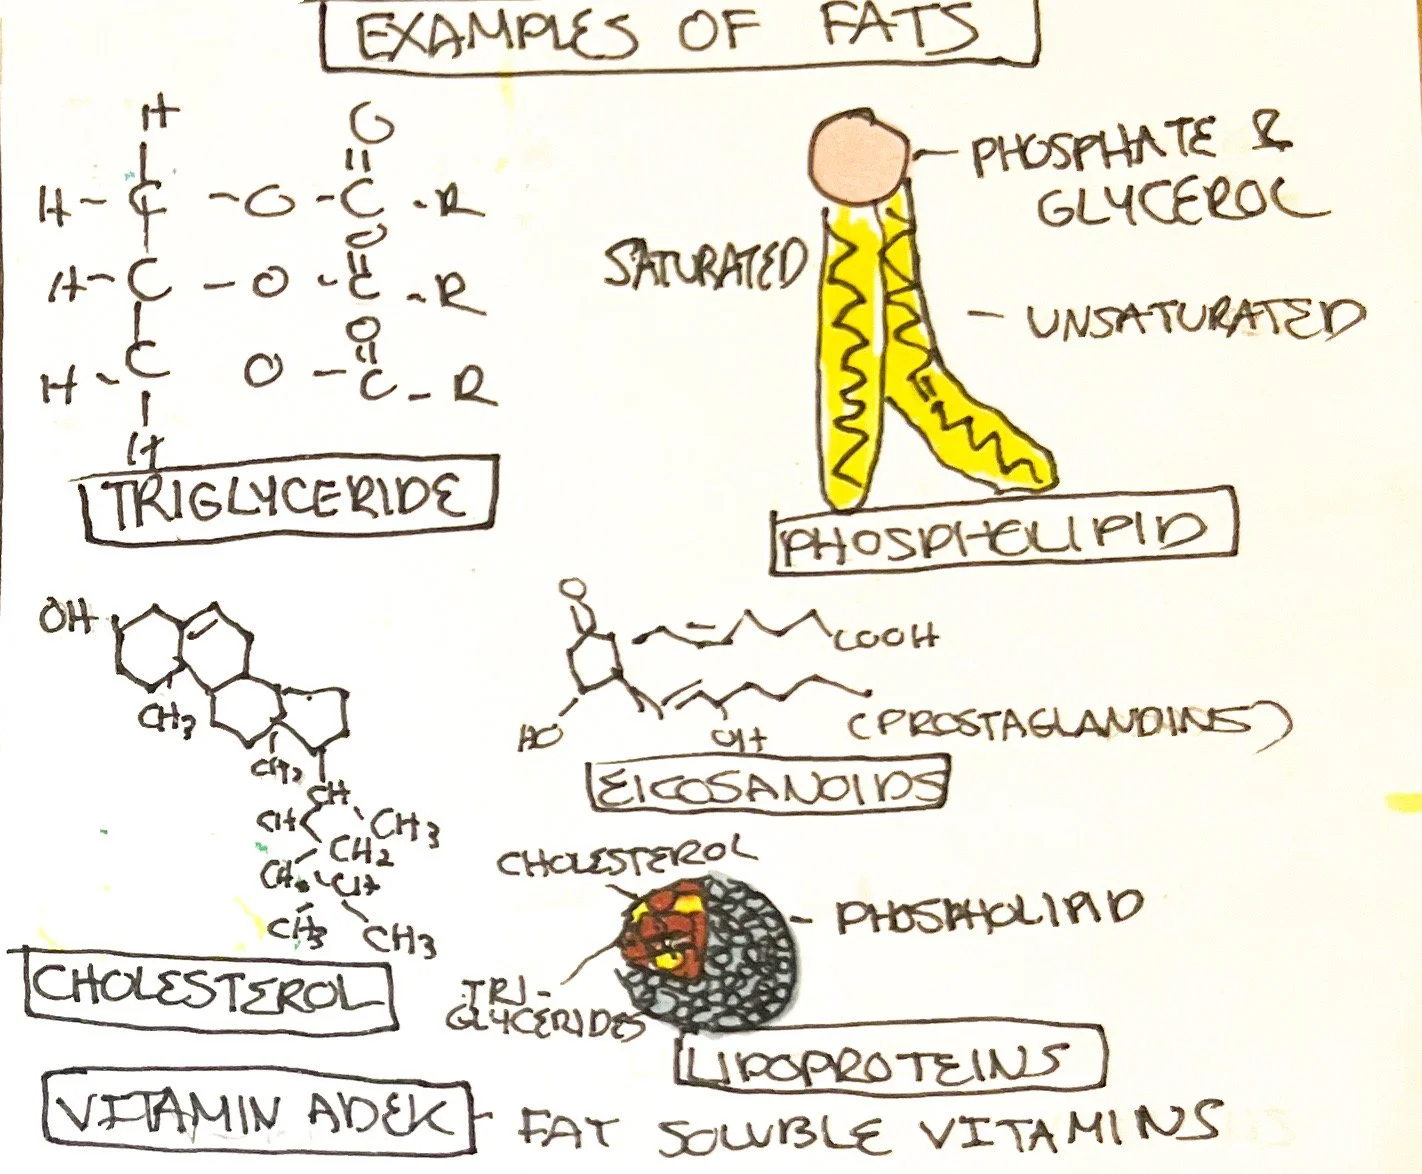 EXAMPLES OF FATS
H
O
H - C - O - C - R
O
H - C - O - C - R
O
H - C O - C - R
H
TRIGLYCERIDE
PHOSPHATE &
GLYCEROL
SATURATED
UNSATURATED
PHOSPHOLIPID
OH
CH3
CH3
CH
CH CH3
CH2
CH2 CH
CH3 CH3
CHOLESTEROL
O
COOH
HO OH
(PROSTAGLANDINS)
EICOSANOIDS
CHOLESTEROL
PHOSPHOLIPID
TRI-
GLYCERIDES
LIPOPROTEINS
VITAMIN ADEK - FAT SOLUBLE VITAMINS